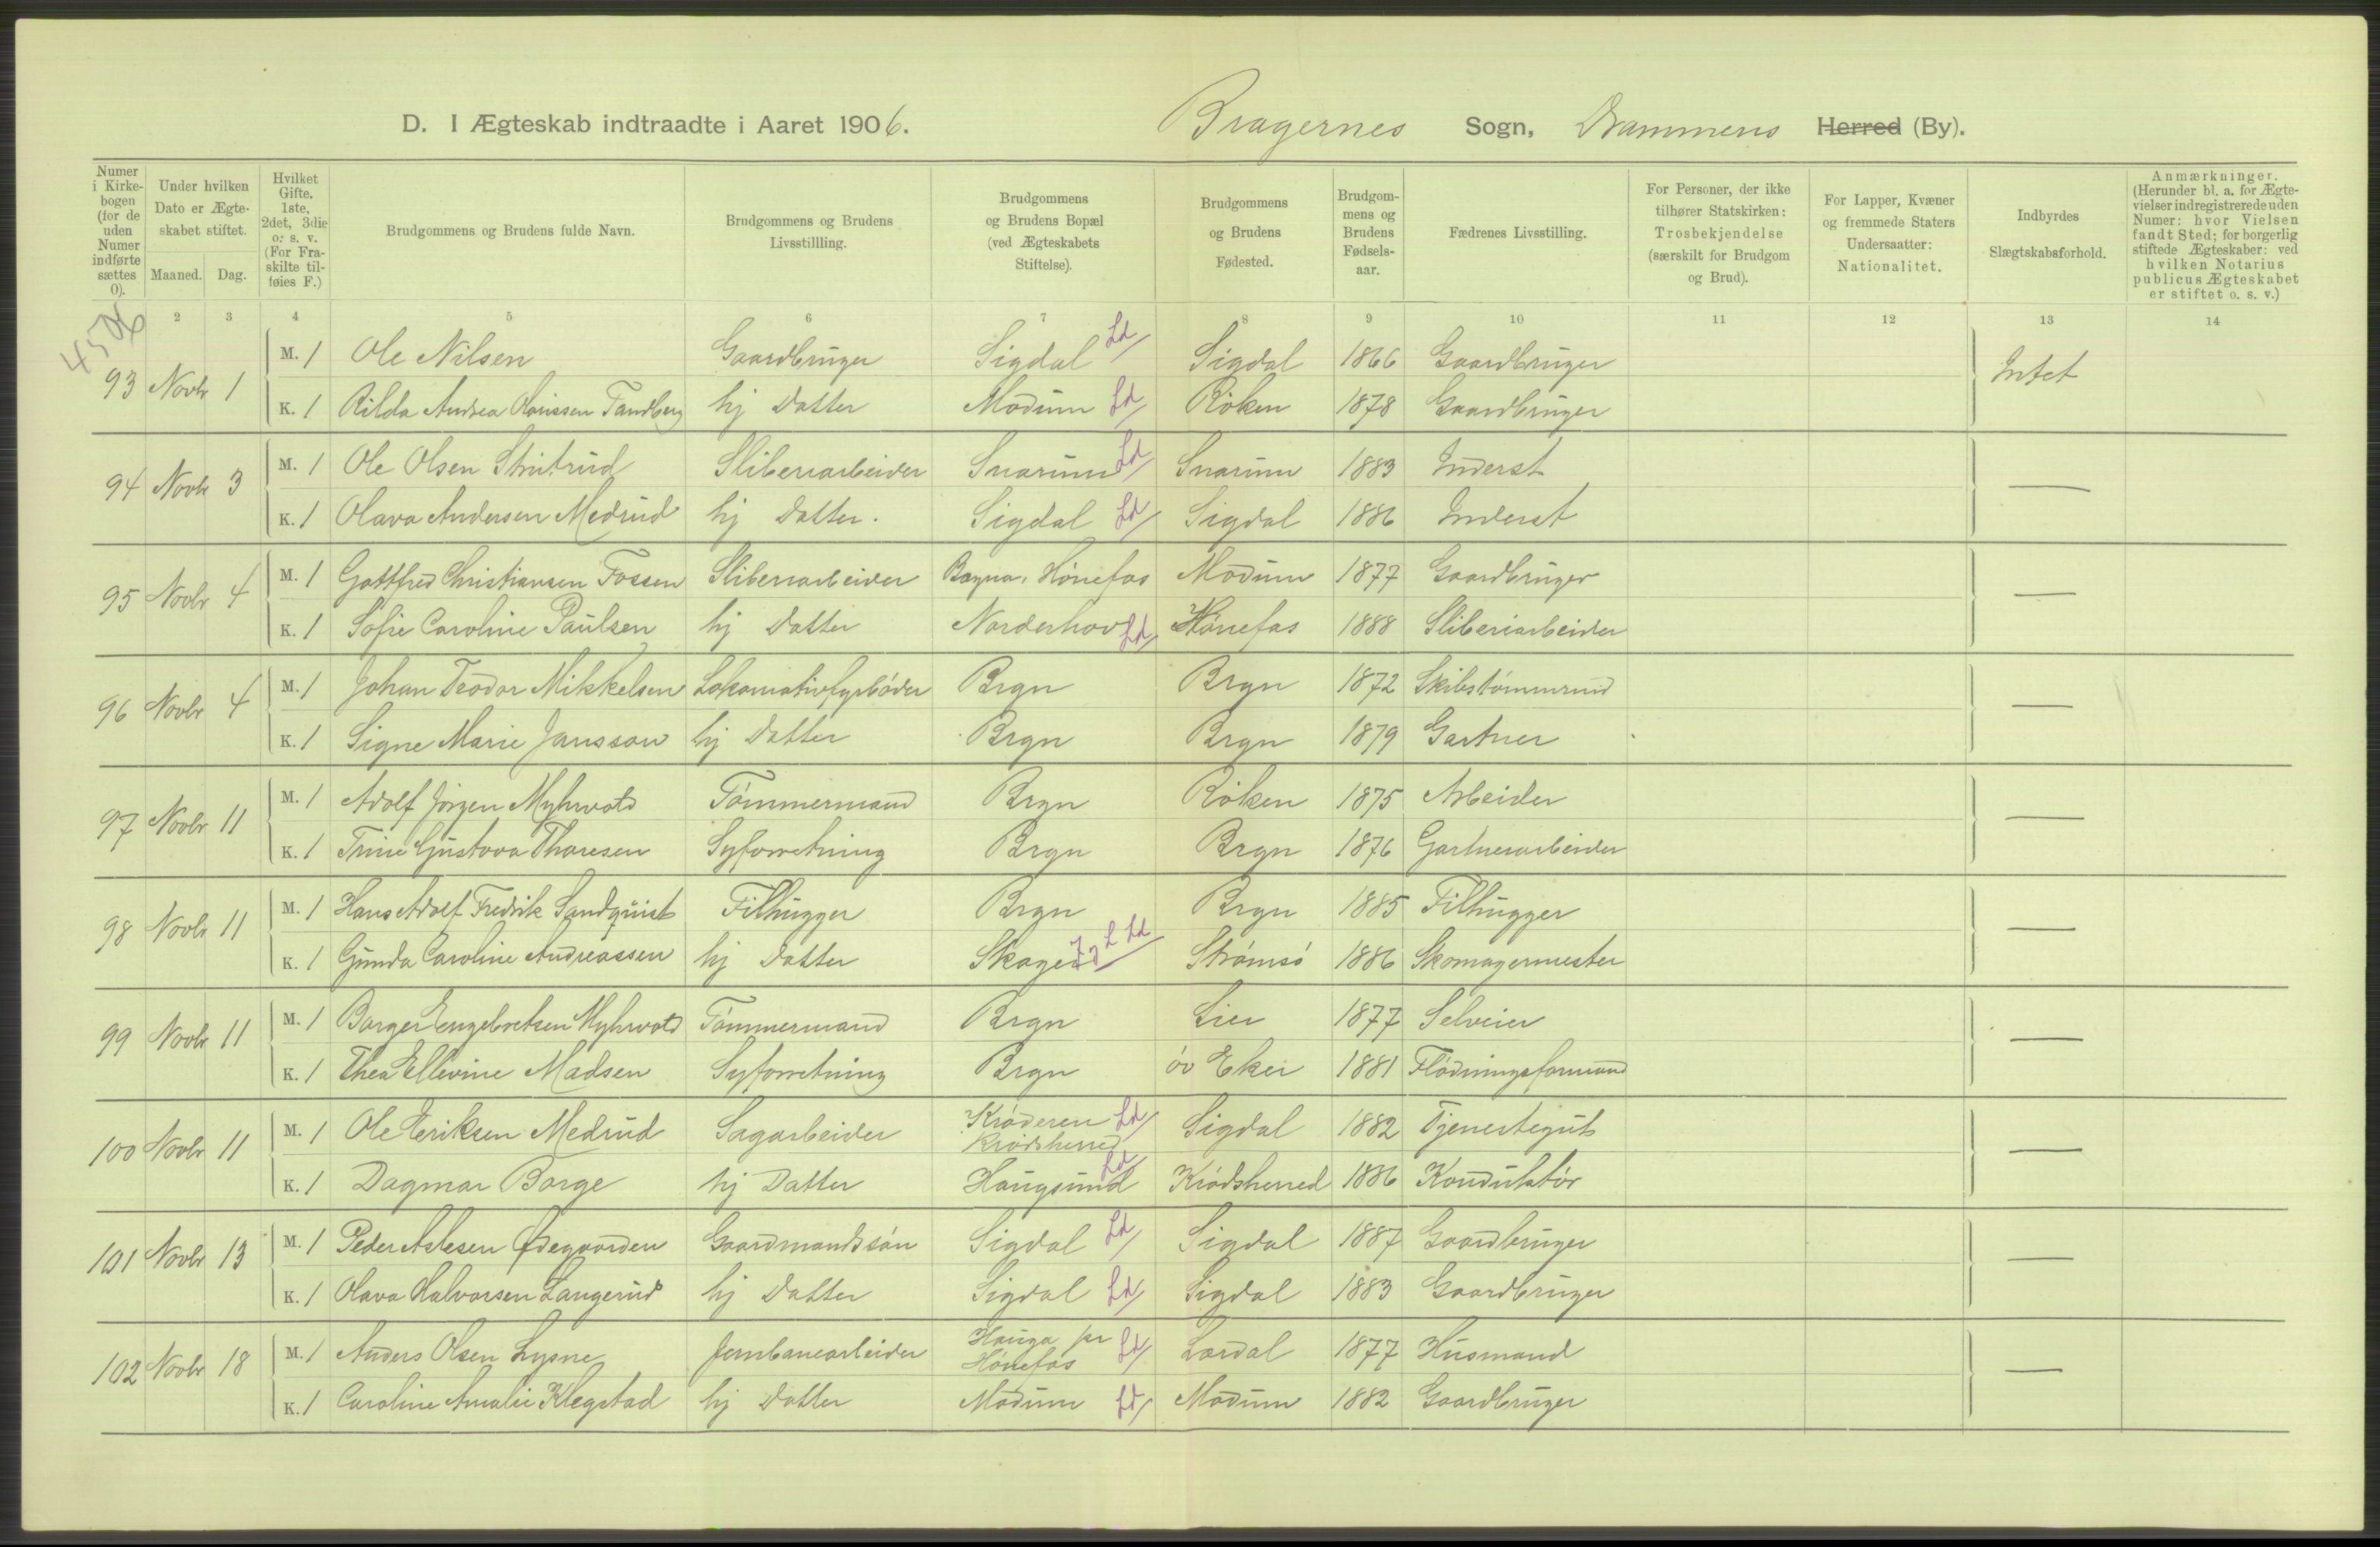 D. I Ægteskab indtraadte i Aaret 1906. Bragernes Sogn, Drammens Herred (By).
Numer i Kirkebogen (for de uden Numer indførte sættes 0). Under hvilken Dato er Ægteskabet stiftet. Maaned. Dag. Hvilket Gifte. 1ste, 2det, 3die o: s. v. (For Fraskilte tilføies F.) Brudgommens og Brudens fulde Navn. Brudgommens og Brudens Livsstillling. Brudgommens og Brudens Bopæl (ved Ægteskabets Stiftelse). Brudgommens og Brudens Fødested. Brudgommens og Brudens Fødselsaar. Fædrenes Livsstilling. For Personer, der ikke tilhører Statskirken: Trosbekjendelse (særskilt for Brudgom og Brud). For Lapper, Kvæner og fremmede Staters Undersaatter: Nationalitet. Indbyrdes Slægtskabsforhold. Anmærkninger. (Herunder bl. a. for Ægtevielser indregistrerede uden Numer: hvor Vielsen fandt Sted; for borgerlig stiftede Ægteskaber: ved hvilken Notarius publicus Ægteskabet er stiftet o. s. v.)
2 3 4 5 6 7 8 9 10 11 12 13 14
93 Novbr 1 M. 1 Ole Nilsen Gaardbruger Sigdal Ld Sigdal 1866 Gaardbruger Intet
K. 1 Andrea Tandberg hj Datter Modum Ld Röken 1878 Gaardbruger
94 Novbr 3 M. 1 Ole Olsen Strutrud Sliberiarbeider Snarum Ld Snarum 1883 Inderst —
K. 1 Olava Andersen Medrud hj Datter. Sigdal Ld Sigdal 1886 Inderst
95 Novbr 4 M. 1 Gottfred Christiansen Fossen Sliberiarbeider Hönefos Modum 1877 Gaardbruger —
K. 1 Sofie Caroline Paulsen hj Datter Norderhov Ld Hönefos 1888 Sliberiarbeider
96 Novbr 4 M. 1 Johan Teodor Mikkelsen Lokomotivfyrböder Brgn Brgn 1872 Skibstömmermd —
K. 1 Signe Marie Jansson hj Datter Brgn Brgn 1879 Gartner
97 Novbr 11 M. 1 Adolf Jörgen Myhrvold Tömmermand Brgn Röken 1875 Arbeider —
K. 1 Trine Gustava Thoresen Syforretning Brgn Brgn 1876 Gartnerarbeider
98 Novbr 11 M. 1 Hans Adolf Fredrik Sandquist Filhugger Brgn Brgn 1885 Filhugger —
K. 1 Gunda Caroline Andreassen hj Datter Skoger L Ld Strömsö 1886 Skomagermester
99 Novbr 11 M. 1 Borger Engebretsen Myhrvold Tömmermand Brgn Lier 1877 Selveier —
K. 1 Thea Ellevine Madsen Syforretning Brgn öv Eker 1881 Flödningsformand
100 Novbr 11 M. 1 Ole Eriksen Medrud Sagarbeider Kröderen Ld Krödsherred Sigdal 1882 Tjenestegut —
K. 1 Dagmar Borge hj Datter Haugsund Ld Krödsherred 1886 Konduktör
101 Novbr 13 M. 1 Peder Aslesen Ødegaarden Gaardmandssön Sigdal Ld Sigdal 1887 Gaardbruger —
K. 1 Olava Halvorsen Langerud hj Datter Sigdal Ld Sigdal 1883 Gaardbruger
102 Novbr 18 M. 1 Anders Olsen Lysne Jernbanearbeider Hauga pr Hönefos Ld Lardal 1877 Husmand —
K. 1 Caroline Amalie Klegstad hj Datter Modum Ld Modum 1882 Gaardbruger